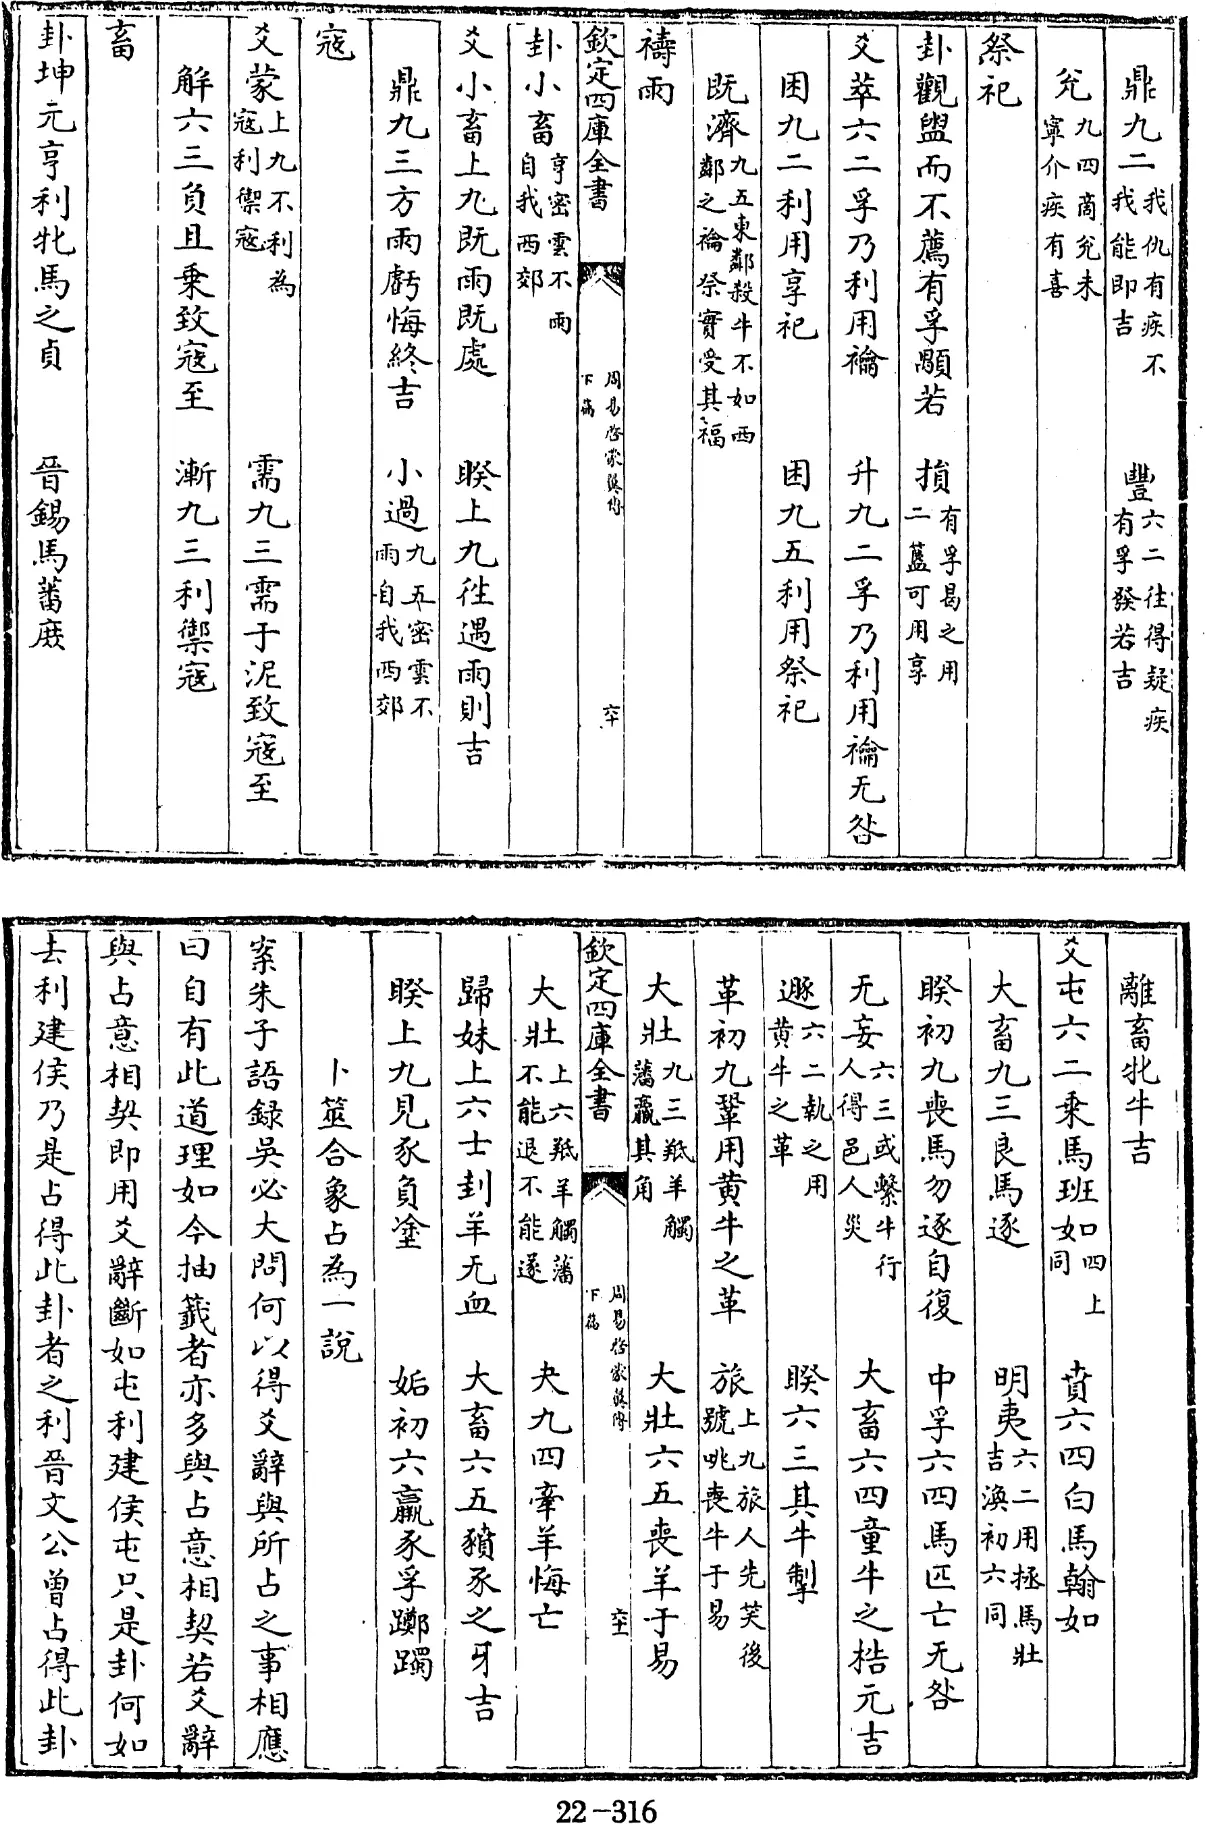 鼎九二我仇有疾不我能即吉　豐六二往得疑疾有孚發若吉
兌九四商兌未寧介疾有喜
祭祀
卦觀盥而不薦有孚顒若　損有孚曷之用二簋可用享
爻萃六二孚乃利用禴　升九二孚乃利用禴无咎
困九二利用享祀　困九五利用祭祀
既濟九五東鄰殺牛不如西鄰之禴祭實受其福
禱雨
欽定四庫全書　周易啓蒙翼傳下篇　六十
卦小畜亨密雲不雨自我西郊
爻小畜上九既雨既處　睽上九往遇雨則吉
鼎九三方雨虧悔終吉　小過九五密雲不雨自我西郊
寇
爻蒙上九不利為寇利禦寇　需九三需于泥致寇至
解六三負且乘致寇至　漸九三利禦寇
畜
卦坤元亨利牝馬之貞　晉錫馬蕃庶
離畜牝牛吉
爻屯六二乘馬班如四上同　賁六四白馬翰如
大畜九三良馬逐　明夷六二用拯馬壯吉渙初六同
睽初九喪馬勿逐自復　中孚六四馬匹亡无咎
无妄六三或繫牛行人得邑人災　大畜六四童牛之牿元吉
遯六二執之用黄牛之革　睽六三其牛掣
革初九鞏用黄牛之革　旅上九旅人先笑後號咷喪牛于易
大壯九三羝羊觸藩羸其角　大壯六五喪羊于易
欽定四庫全書　周易啓蒙翼傳下篇　六十一
大壯上六羝羊觸藩不能退不能遂　夬九四牽羊悔亡
歸妹上六士刲羊无血　大畜六五豶豕之牙吉
睽上九見豕負塗　姤初六羸豕孚蹢躅
卜筮合象占為一說
案朱子語録吳必大問何以得爻辭與所占之事相應
曰自有此道理如今抽籖者亦多與占意相契若爻辭
與占意相契即用爻辭斷如屯利建侯屯只是卦何如
去利建侯乃是占得此卦者之利晉文公曾占得此卦
22-316